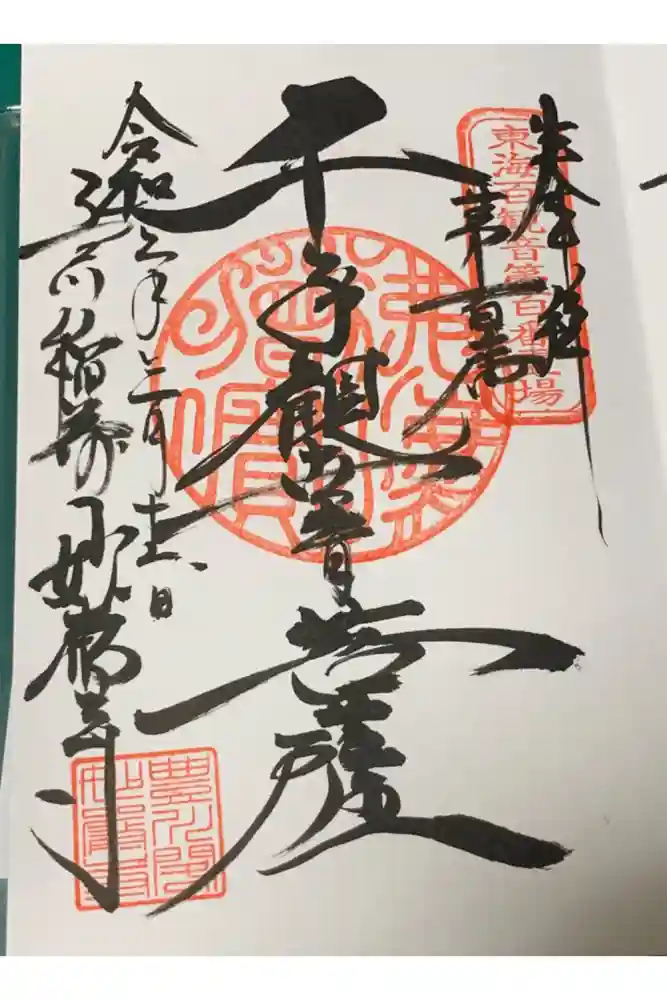 奉拝
第百番
東海百観音第百番霊場
千手観世音菩薩
佛法僧寶
令和三年三月
豊川稲荷 妙厳寺
豊川閣
妙厳寺